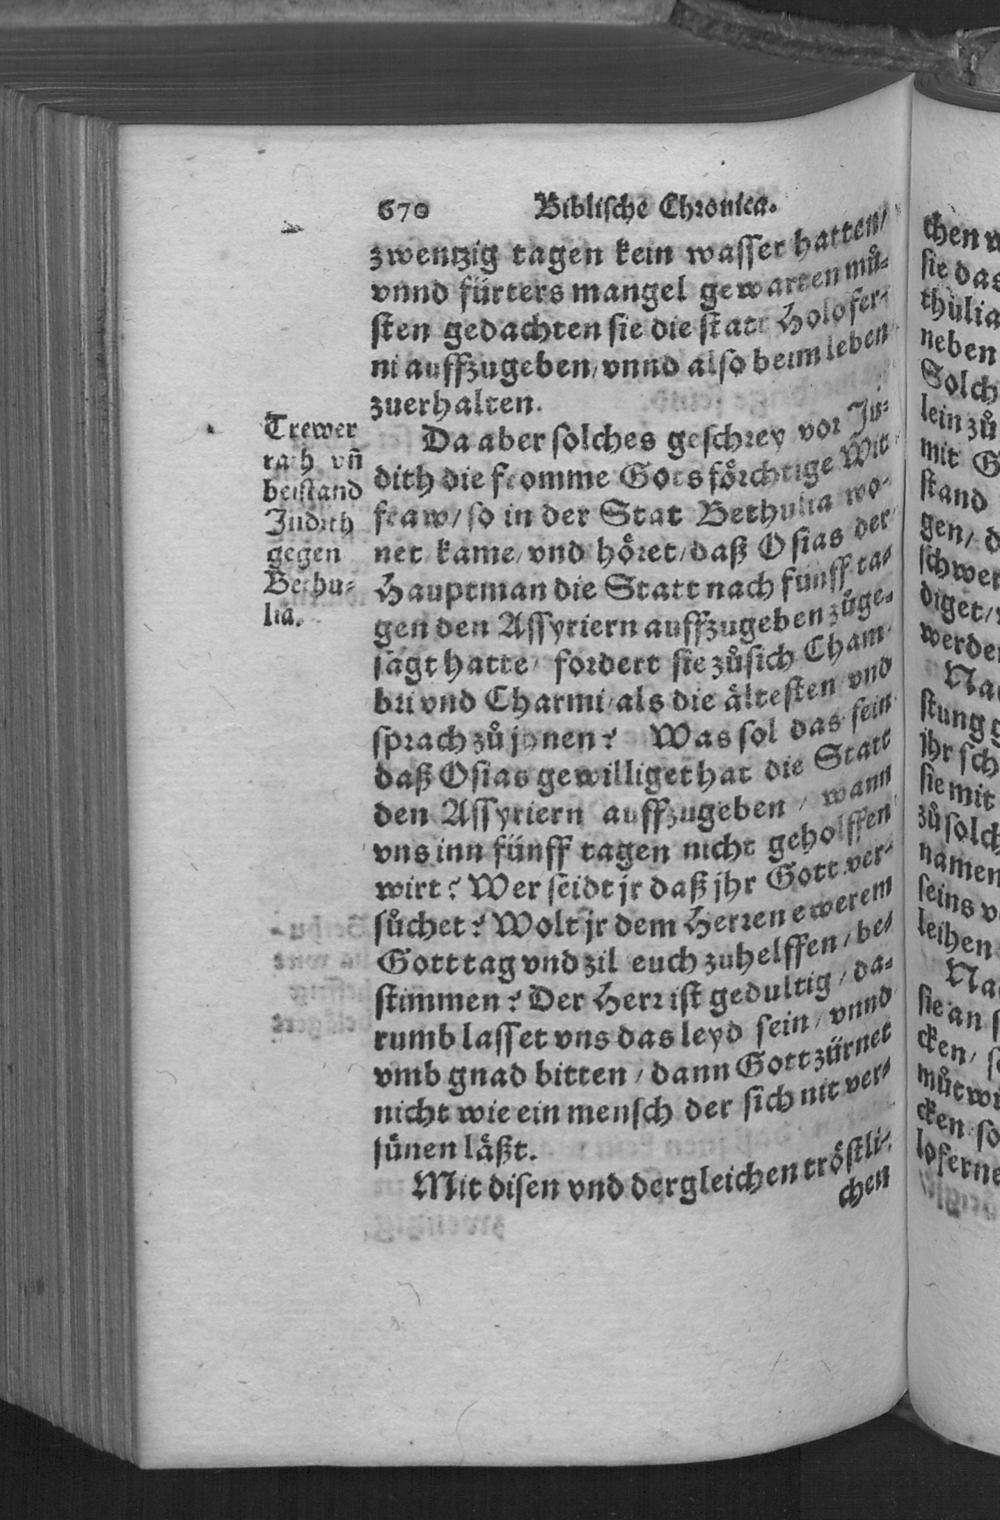 670 Biblische Chronica.
zwentzig tagen kein wasser hatten/
vnnd fürters mangel gewarten mů-
sten gedachten sie die statt Holofer-
ni auffzugeben/ vnnd also beim leben
zuerhalten.
Trewer
rath vñ
beistand
Judith
gegen
Bethu-
lia.
Da aber solches geschrey vor Ju-
dith die fromme Gots förchtige Wit
fraw/ so in der Stat Bethulia wo-
net kame/ vnd höret/ daß Osias der
Hauptman die Statt nach fünff ta-
gen den Assyriern auffzugeben zůge-
sagt hatte/ fordert sie zů sich Cham-
bri vnd Charmi/ als die ältesten vnd
sprach zů jhnen? Was sol das sein
daß Osias gewilliget hat die Statt
den Assyriern auffzugeben / wann
vns inn fünff tagen nicht geholffen
wirt? Wer seidt jr daß jhr Gott ver-
sůchet? Wolt jr dem Herren ewerem
Gott tag vnd zil euch zuhelffen/ be-
stimmen? Der Herr ist gedultig/ da-
rumb lasset vns das leyd sein/ vnnd
vmb gnad bitten/ dann Gott zürnet
nicht wie ein mensch der sich nit ver-
sünen läßt.
Mit disen vnd dergleichen tröstli-
chen
chen
sie das
thulia
neben
Solch
lein zů
mit G
stand
gen/ d
schwer
diget/
werde
Na
stung g
jhr sch
sie mit
zů solch
namen
seins v
leihen
Na
sie an s
cken/ s
můtwi
cken so
loferne